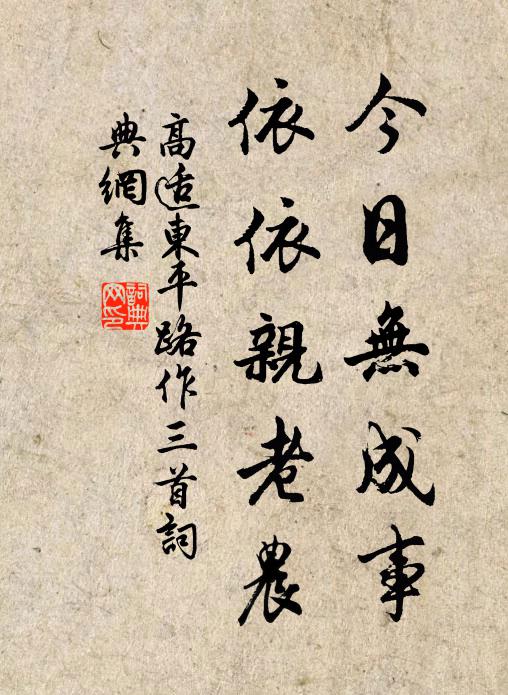 今日無成事
依依親老農
高适東平路作三首詞
典網集
詞典
网印